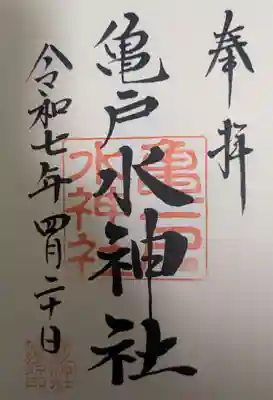 奉拝
亀戸水神社
令和七年四月二十日
亀戸
水神社